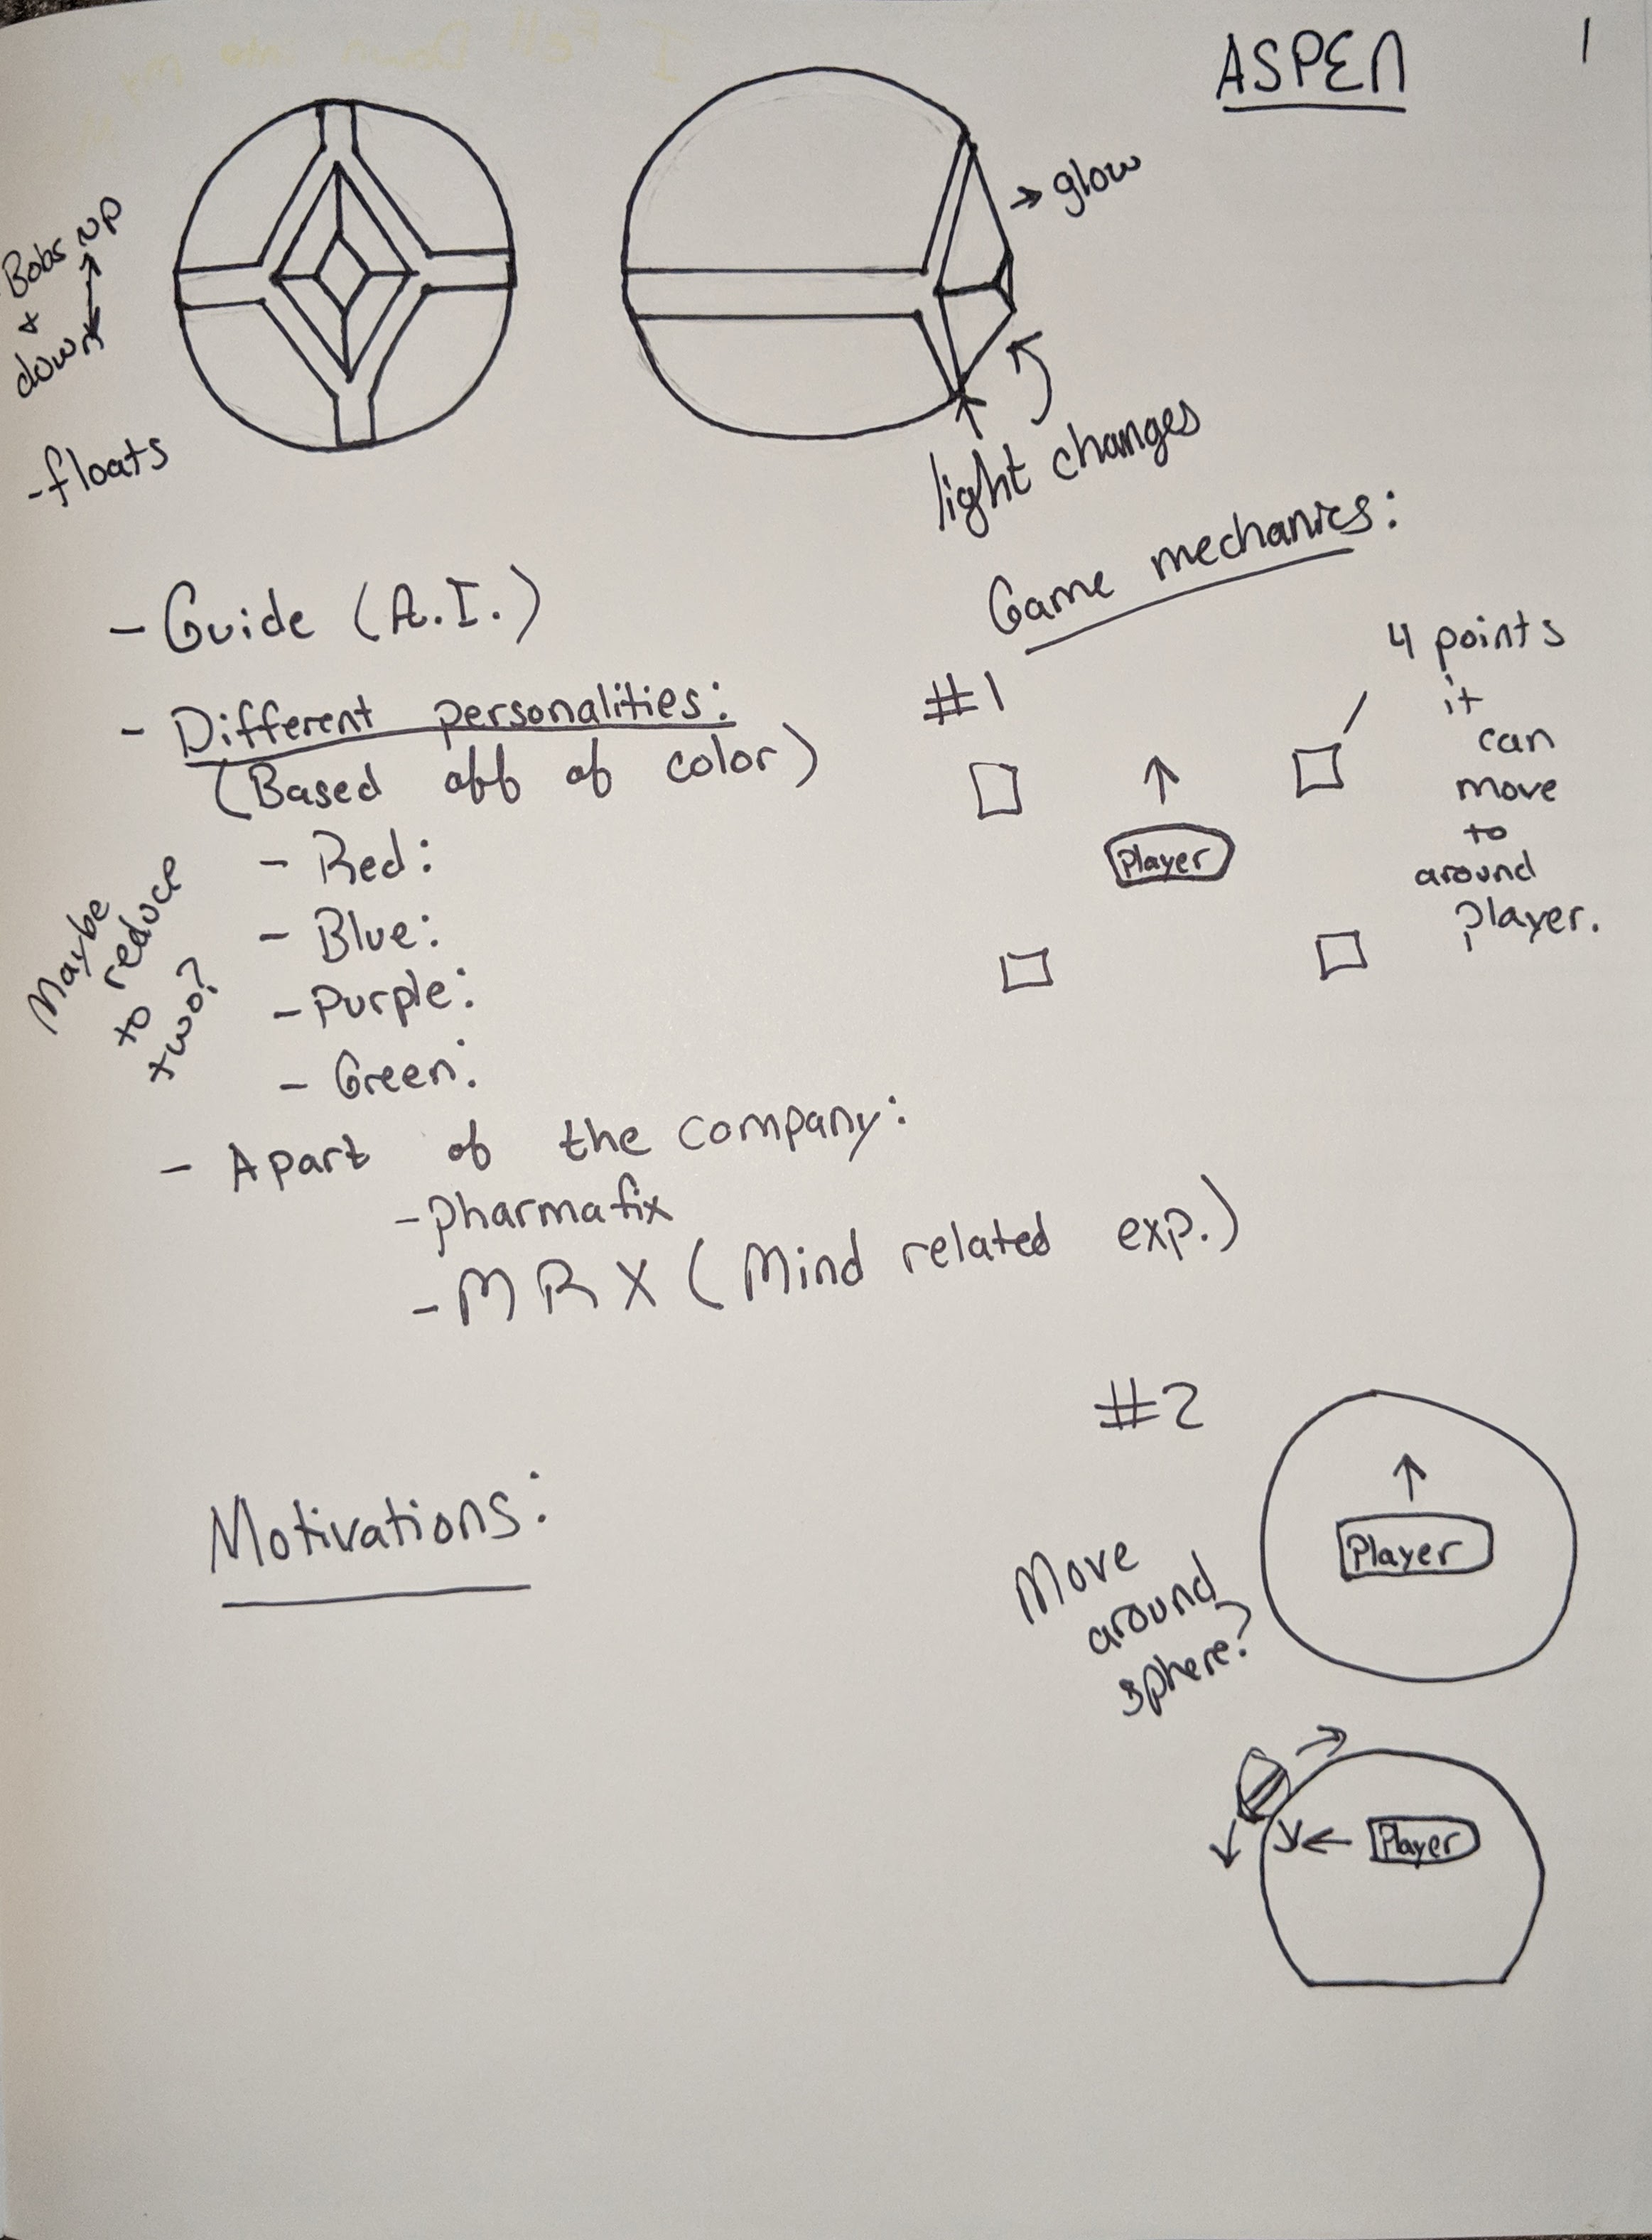 ASPEN
1
Bobs up
&
down
- floats
→ glow
light changes
- Guide (A.I.)
- Different personalities:
(Based off of color)
- Red:
- Blue:
- Purple:
- Green:
Maybe
reduce
to
two?
- Apart of the company:
- Pharmafix
- MRX (Mind related exp.)
Motivations:
Game mechanics:
#1
4 points
it
can
move
to
around
player.
Player
#2
Player
Move
around
sphere?
Player